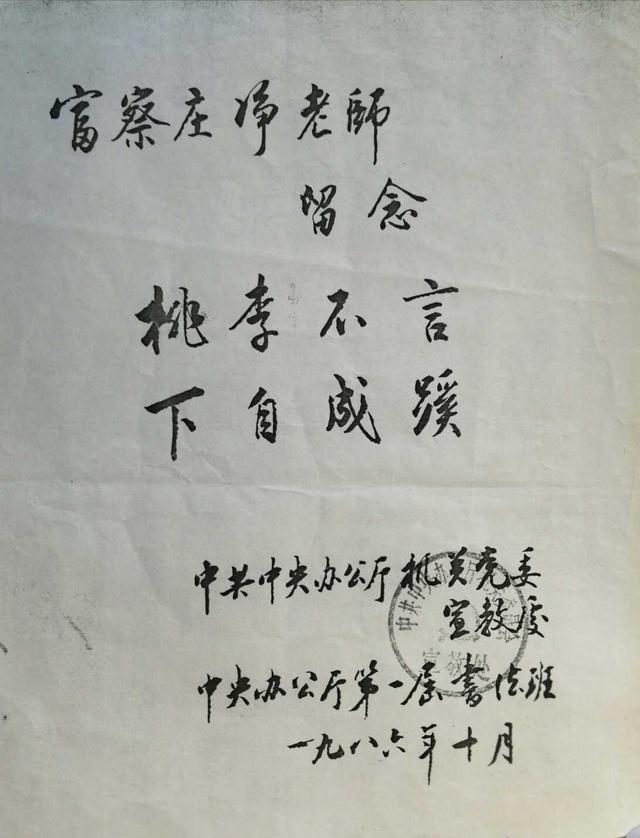 富察庄净老師
留念
桃李不言
下自成蹊
中共中央办公厅机关党委
宣教处
中央办公厅第一届書法班
一九八六年十月
宣教处